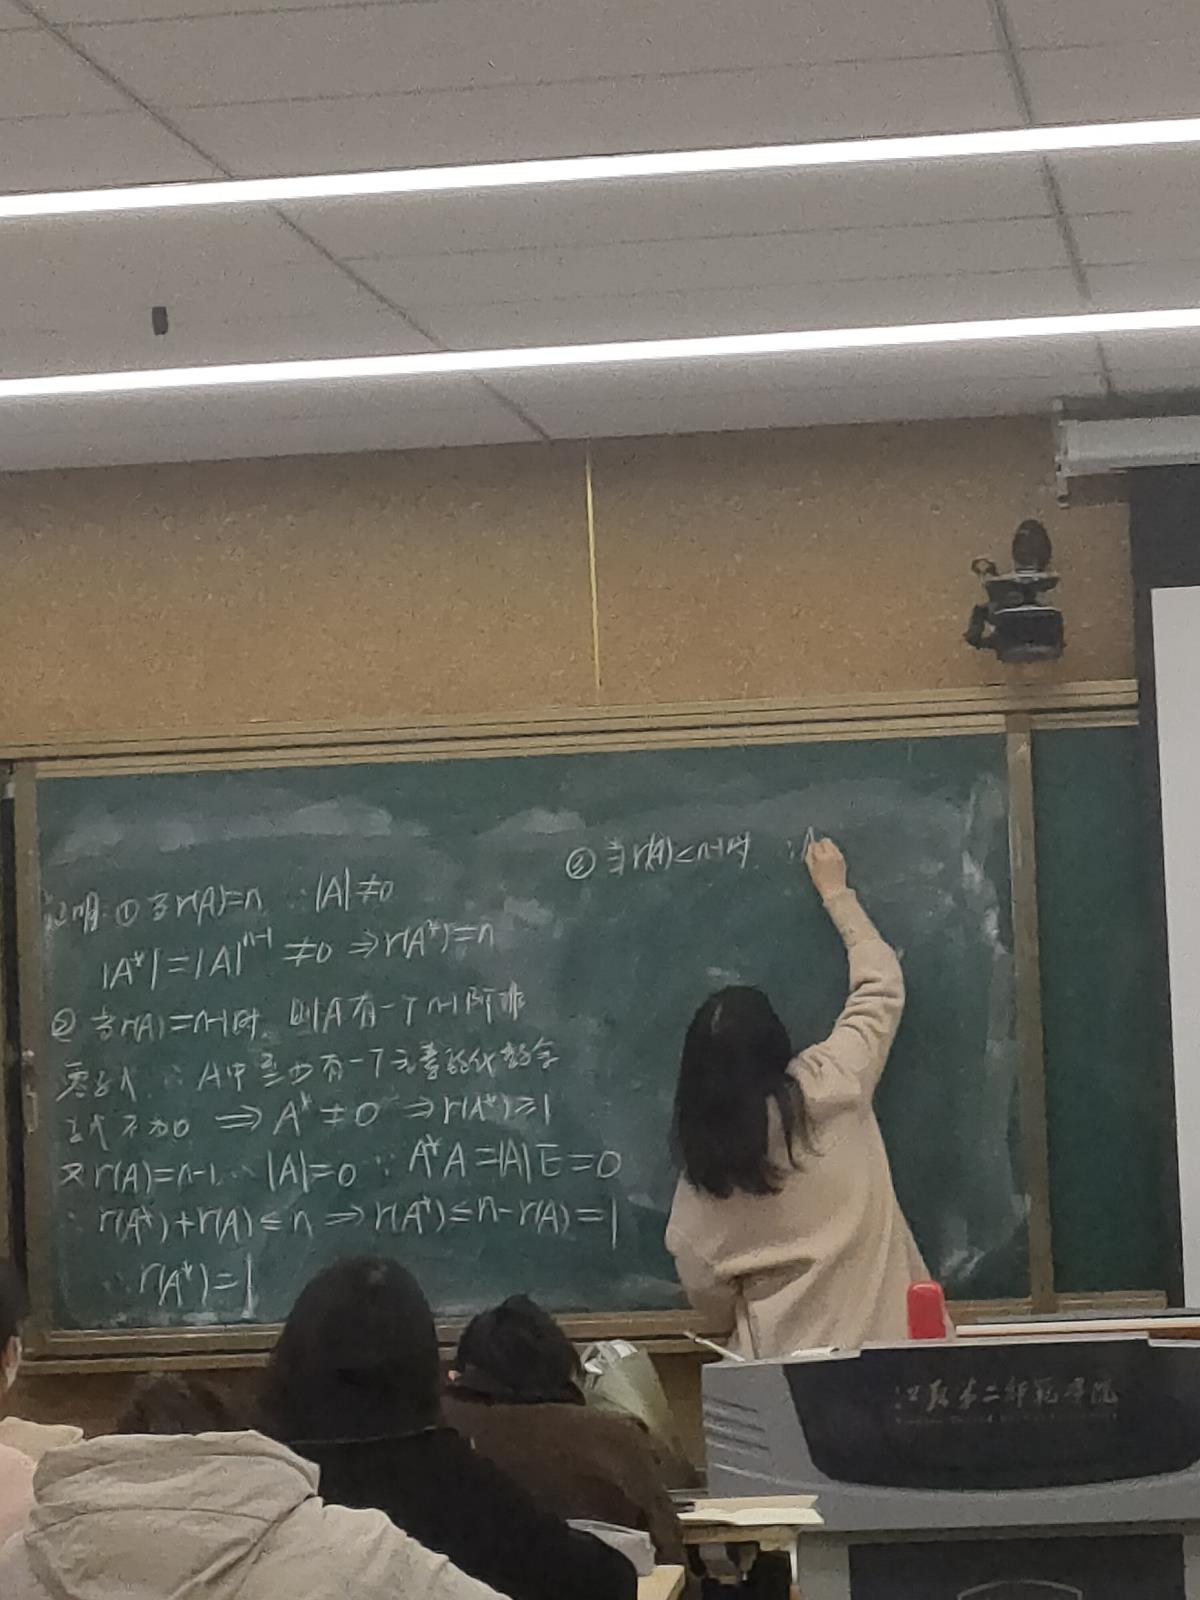 证明: ① 当r(A)=n ∴ |A|≠0
|A*|=|A|^{n-1} ≠0 ⇒r(A*)=n
② 当r(A)=n-1时, 则A有一个n-1阶非
零子式 ∴ A中至少有一个元素的代数余
子式不为0 ⇒ A*≠0 ⇒r(A*)≥1
又r(A)=n-1 ∴ |A|=0 ∵ A*A=|A|E=0
∴ r(A*)+r(A)≤n ⇒r(A*)≤n-r(A)=1
∴ r(A*)=1
③ 当r(A)<n-1时
江苏第二师范学院